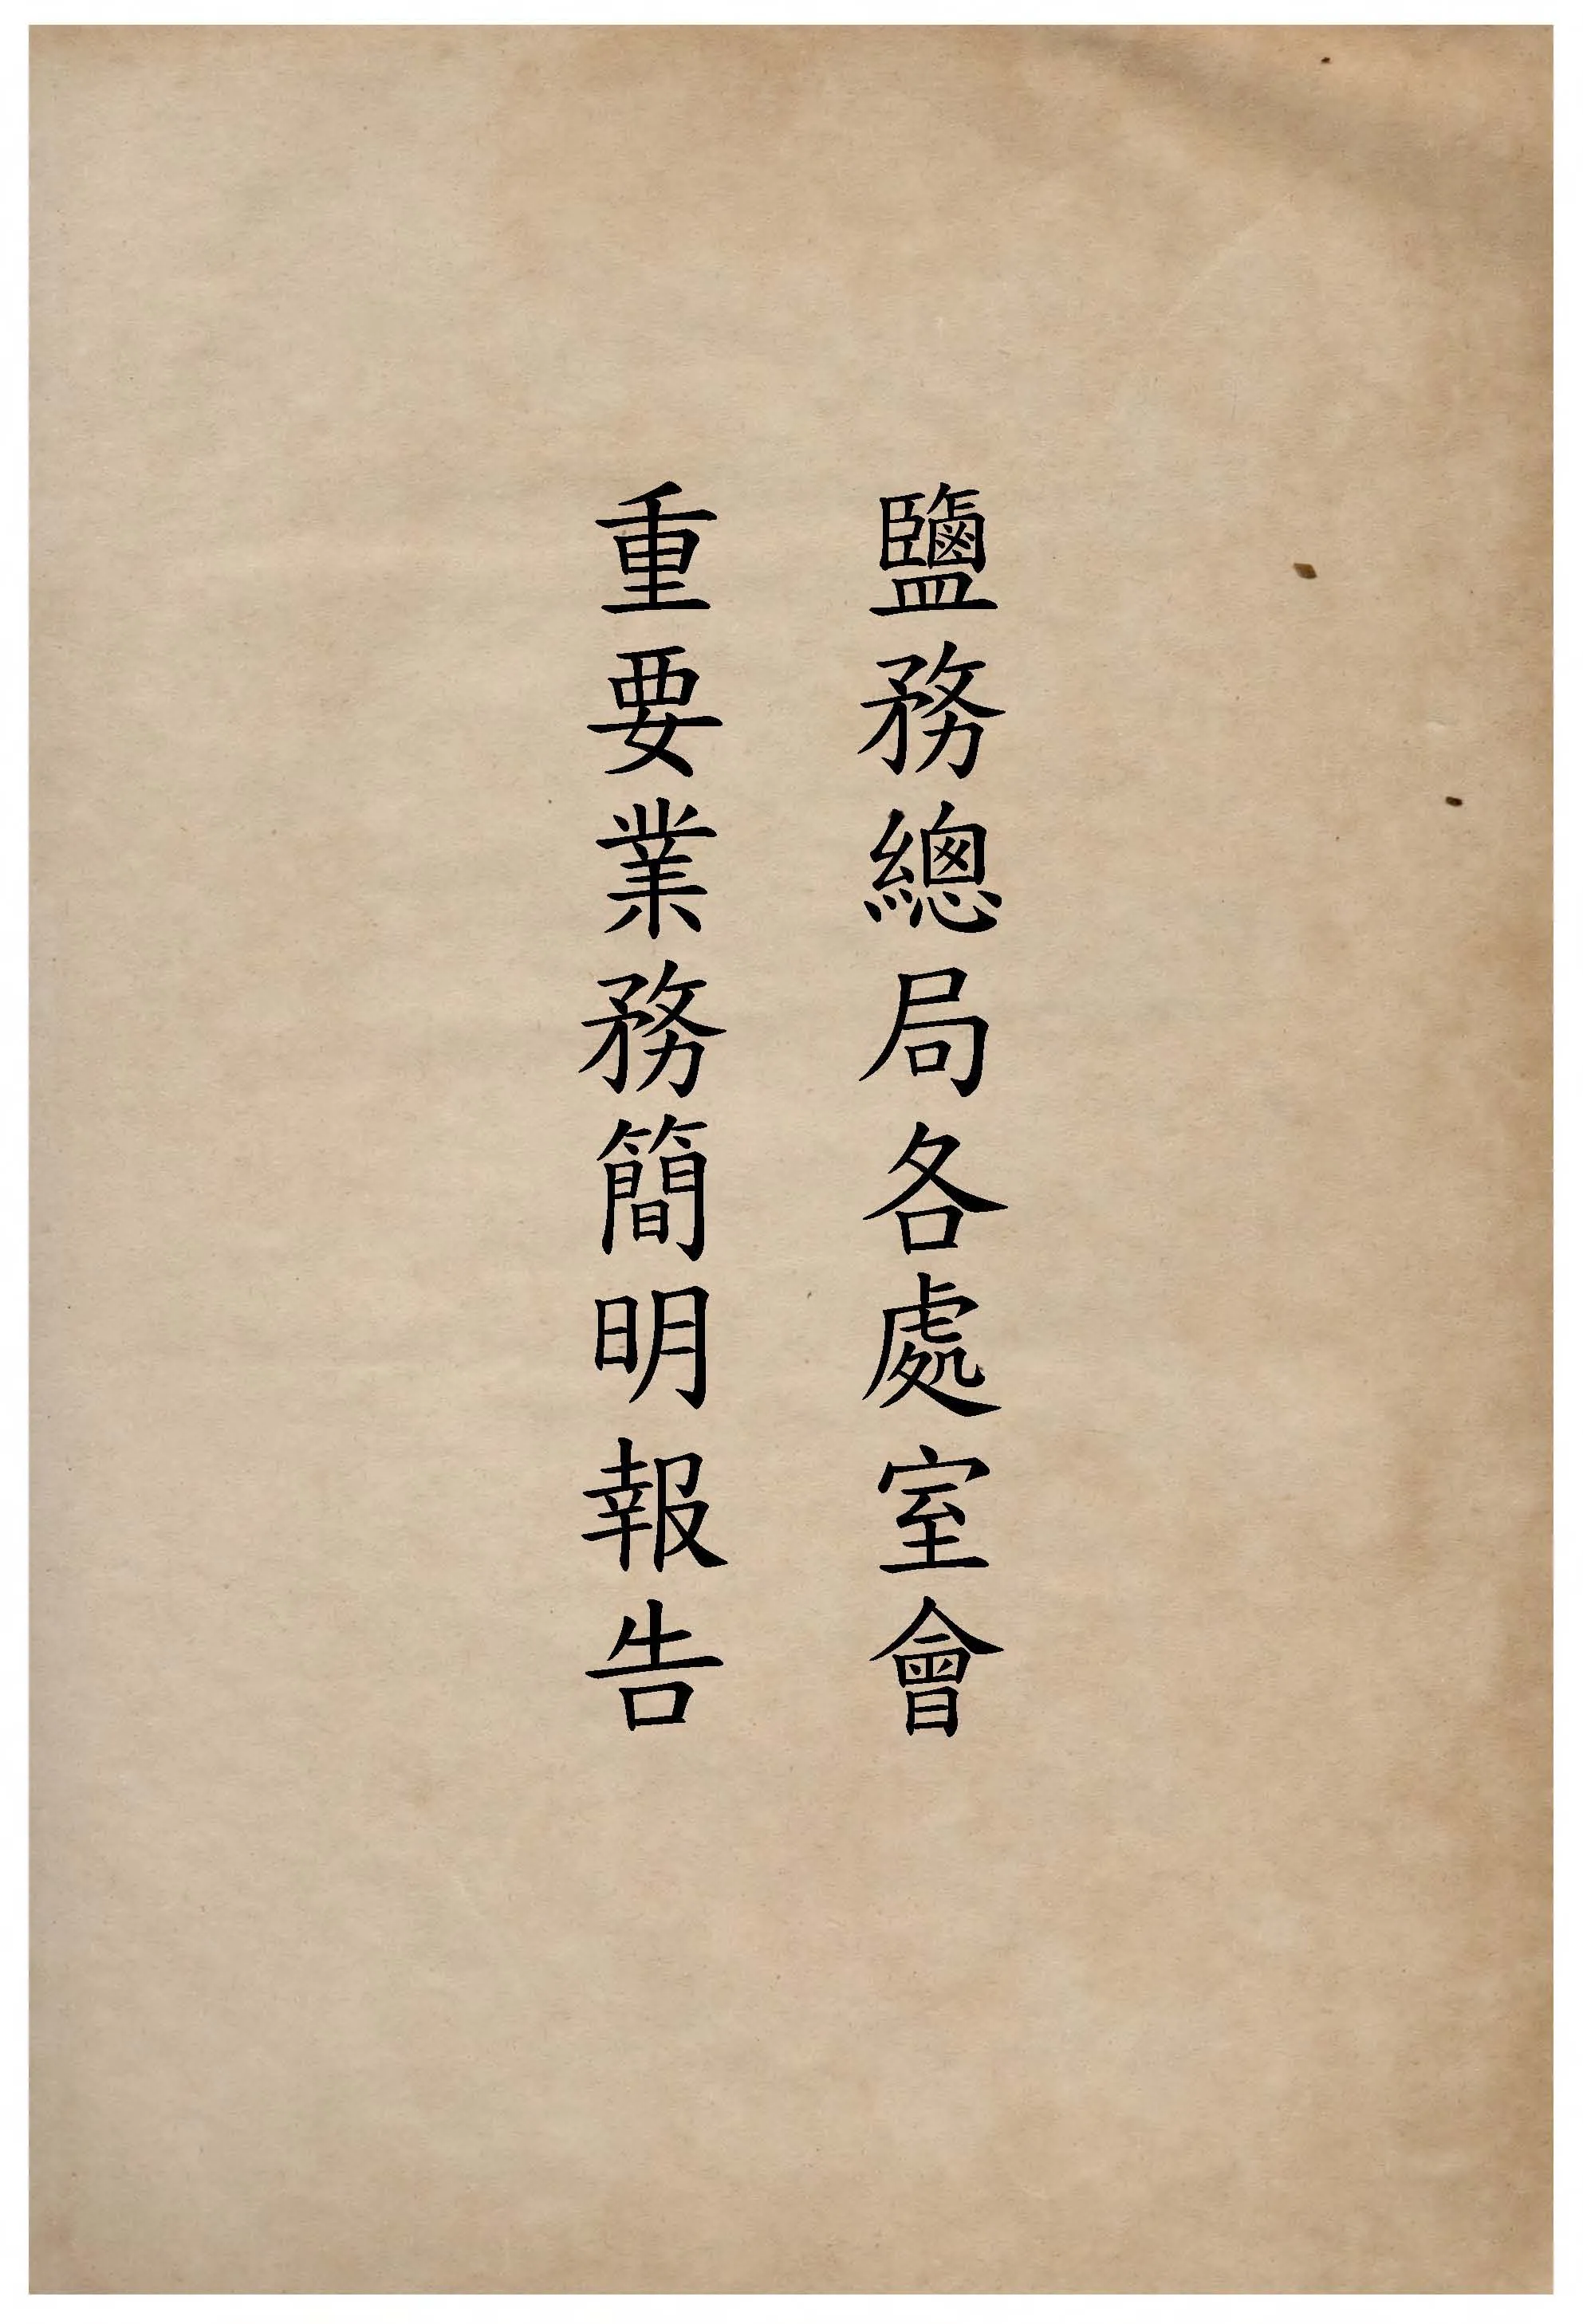 鹽務總局各處室會
重要業務簡明報告